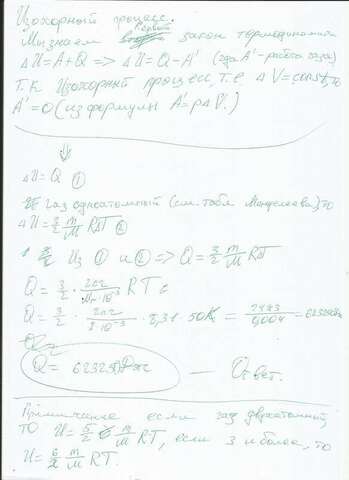 Изохорный процесс.
Мы знаем первый закон термодинамики
ΔU = A + Q => ΔU = Q - A' (где A' - работа газа)
Т.к Изохорный процесс, т.е. ΔV = const, то
A' = 0 (из формулы A' = pΔV.)
⇓
ΔU = Q ①
газ одноатомный (см. табл Менделеева), то
ΔU = 3/2 m/M RΔT ②
Из ① и ② => Q = 3/2 m/M RΔT
Q = 3/2 · 2кг/4·10⁻³ RT
Q = 3/2 · 2кг/4·10⁻³ · 8,31 · 50K = 2493/0,004 =
Q = Дж — Ответ.
Примечание если газ двухатомный,
то U = 5/2 m/M RT, если 3 и более, то
U = 6/2 m/M RT.